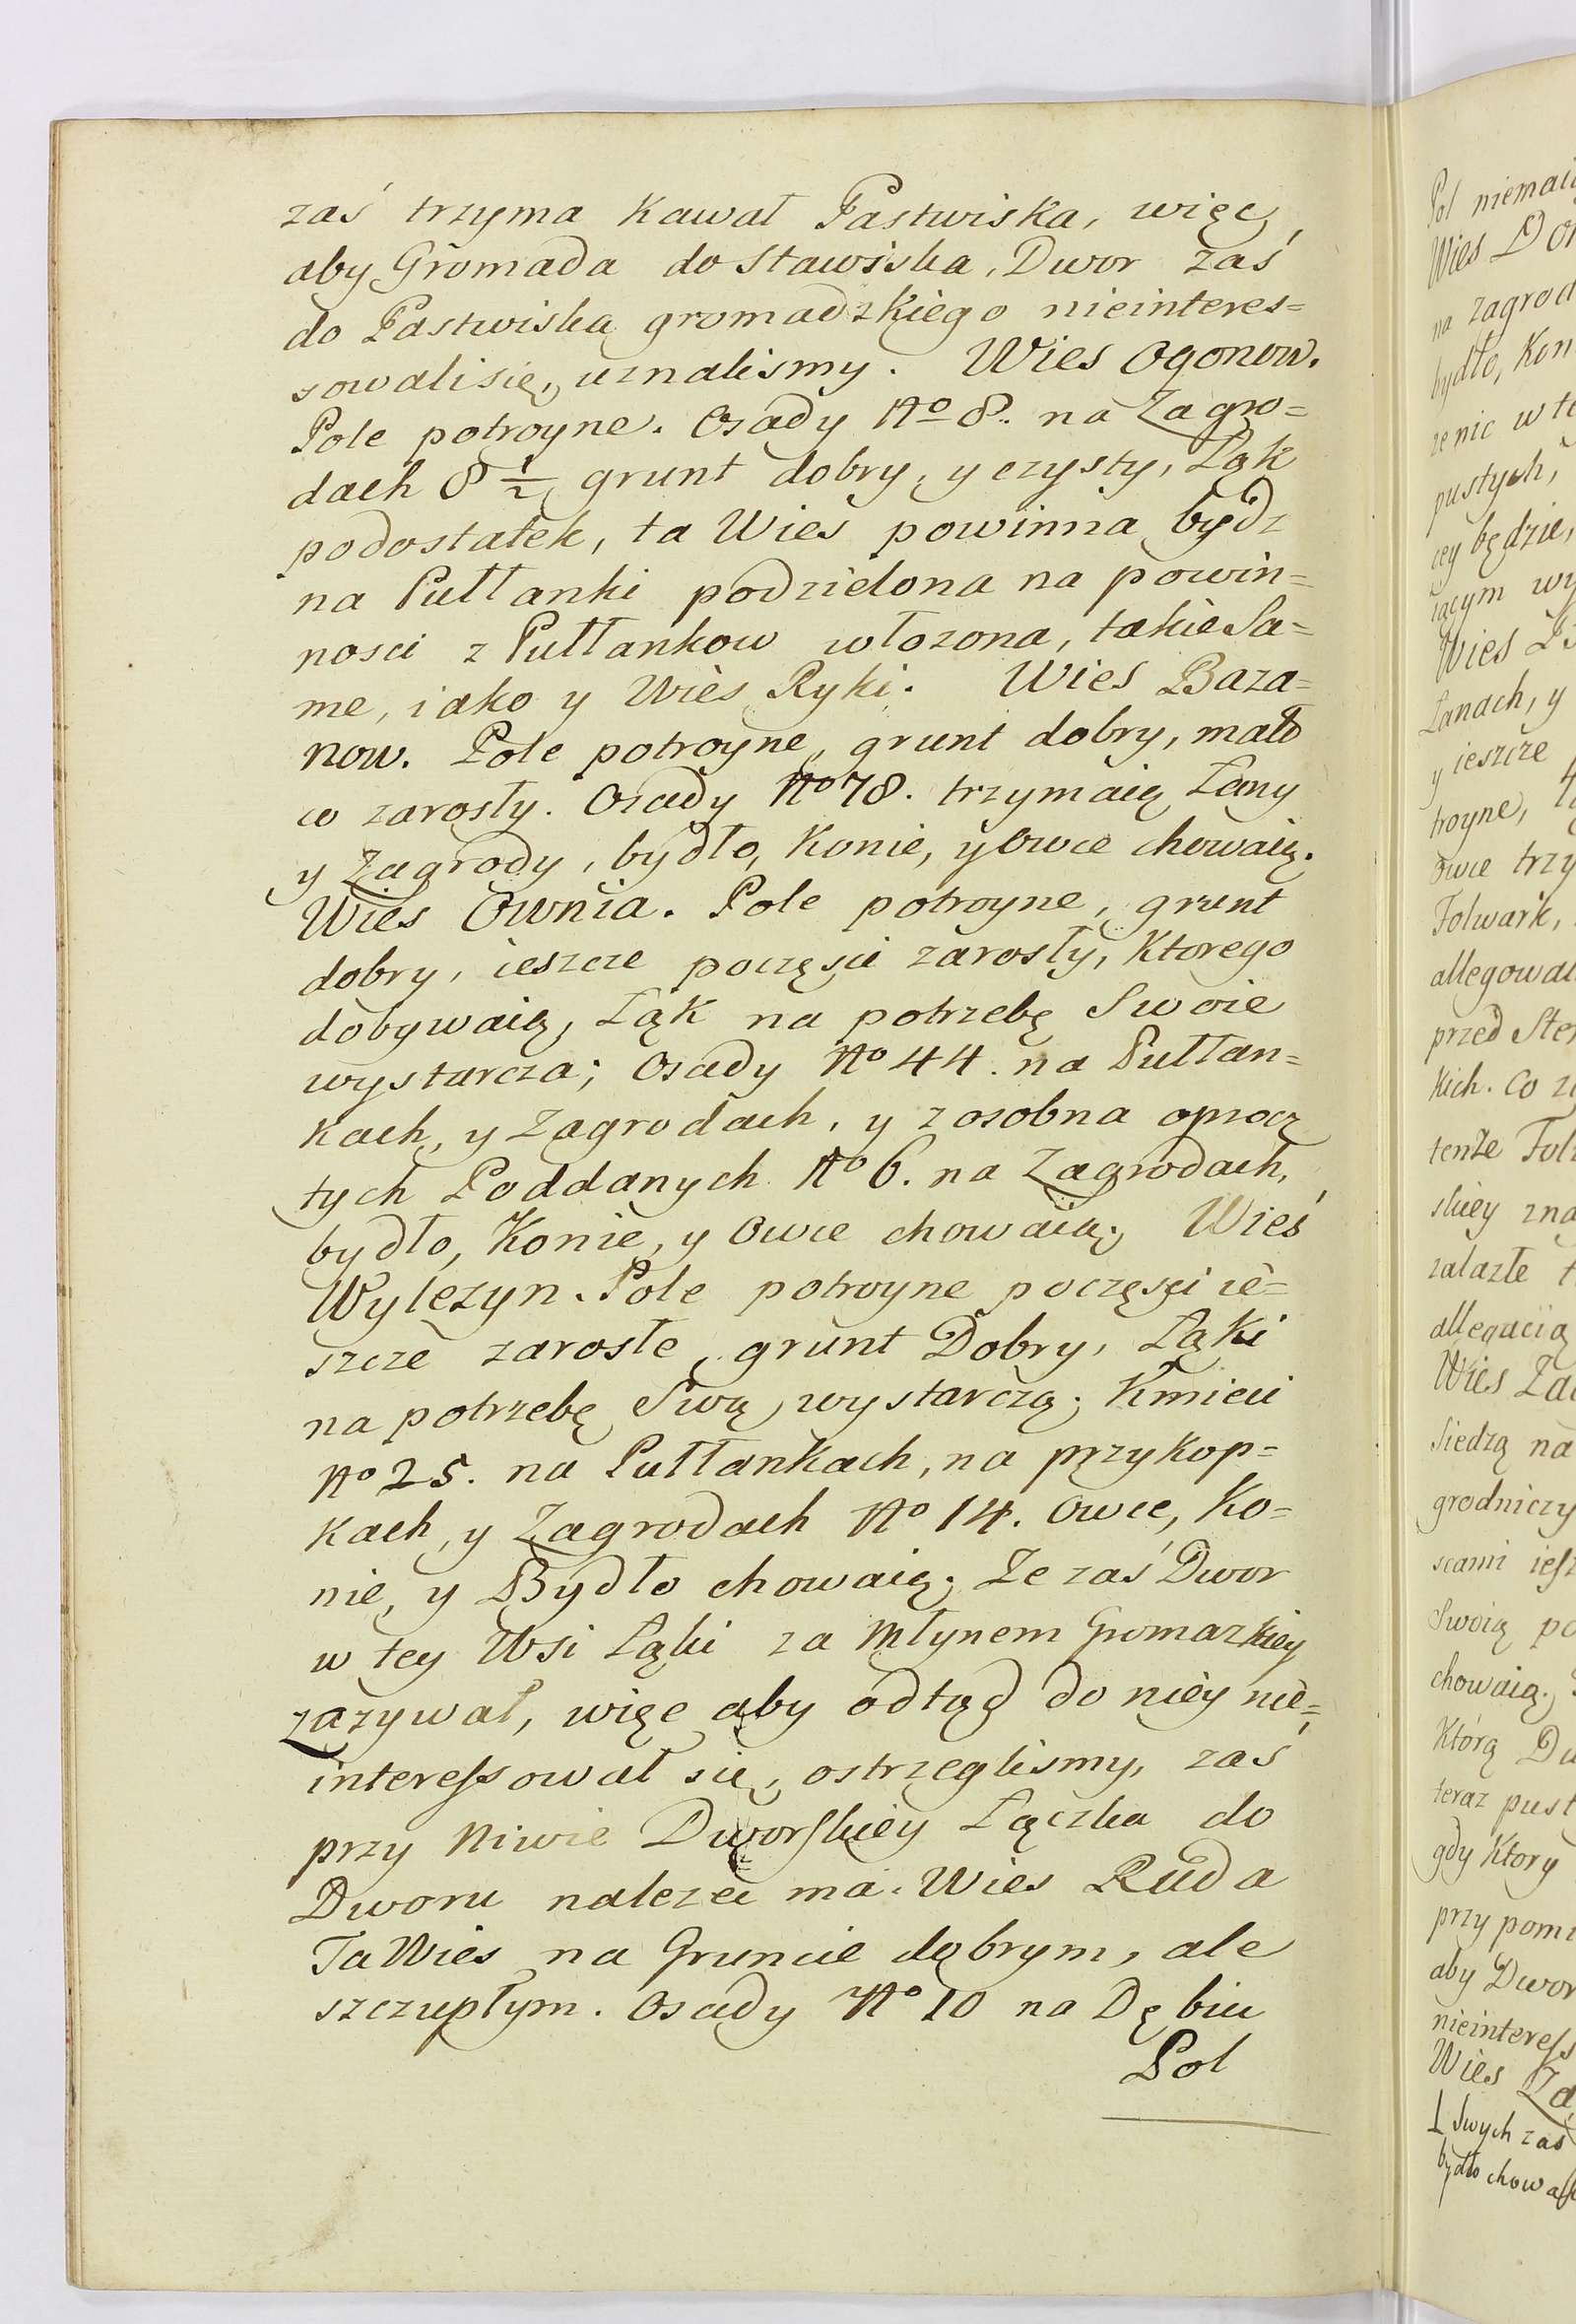 zaś trzyma kawał Pastwiska, więc,
aby Gromada do Stawiska, Dwor zaś
do Pastwiska gromadzkiego nieinteres=
sowali się, uznalismy. Wies Ogonow.
Pole potroyne. Osady No 8. na Zagro=
dach 8 1/2, grunt dobry, y czysty, Łąk
podostatek, ta Wies powinna bydz
na Pułłanki podzielona na powin=
nosci z Pułłankow włozona, takie Sa=
me, iako y Wies Ryki. Wies Baza=
now. Pole potroyne, grunt dobry, mało
co zarosły. Osady No 78. trzymaią Łany
y Zagrody, bydło, Konie, y Owce chowaią.
Wies Ownia. Pole potroyne, grunt
dobry, ieszcze poczęsci zarosły, Ktorego
dobywaią, Łąk na potrzebę Swoie
wystarcza; Osady No 44. na Pułłan=
kach, y Zagrodach, y z osobna oprocz
tych Poddanych No 6. na Zagrodach,
bydło, Konie, y Owce chowaią; Wieś
Wylezyn. Pole potroyne poczęsci ie=
szcze zarosłe, grunt Dobry, Łąki
na potrzebę Swą wystarczą; Kmieci
No 25. na Pułłankach, na przykop=
kach, y Zagrodach No 14. Owce, Ko=
nie, y Bydło chowaią; Ze zaś Dwor
w tey Wsi Łąki za Młynem Gromazkiey
zazywał, więc aby odtąd do niey nie=
interessował się, ostrzeglismy, zaś
przy Niwie Dworskiey Łączka do
Dworu nalezeć ma. Wies Ruda
Ta Wies na Gruncie dobrym, ale
szczupłym. Osady No 10 na Dębiu
Pol
Pol niemaią
Wies
na zagrod
bydło, Kon
ze nic w te
pustych,
cey będzie,
iącym wy
Wies
Łanach, y
y ieszcze
troyne,
owce trzy
Folwark,
allegowal
przed Ste
kich. Co
tenże Fol
skiey zna
zalazłe
allegacią
Wies
Siedzą na
grodniczy
scami iesz
Swoią po
chowaią.
Którą Dw
teraz pust
gdy Ktory
przy pom
aby Dwor
nieinteress
Wies
Swych zaś
bydło chowa